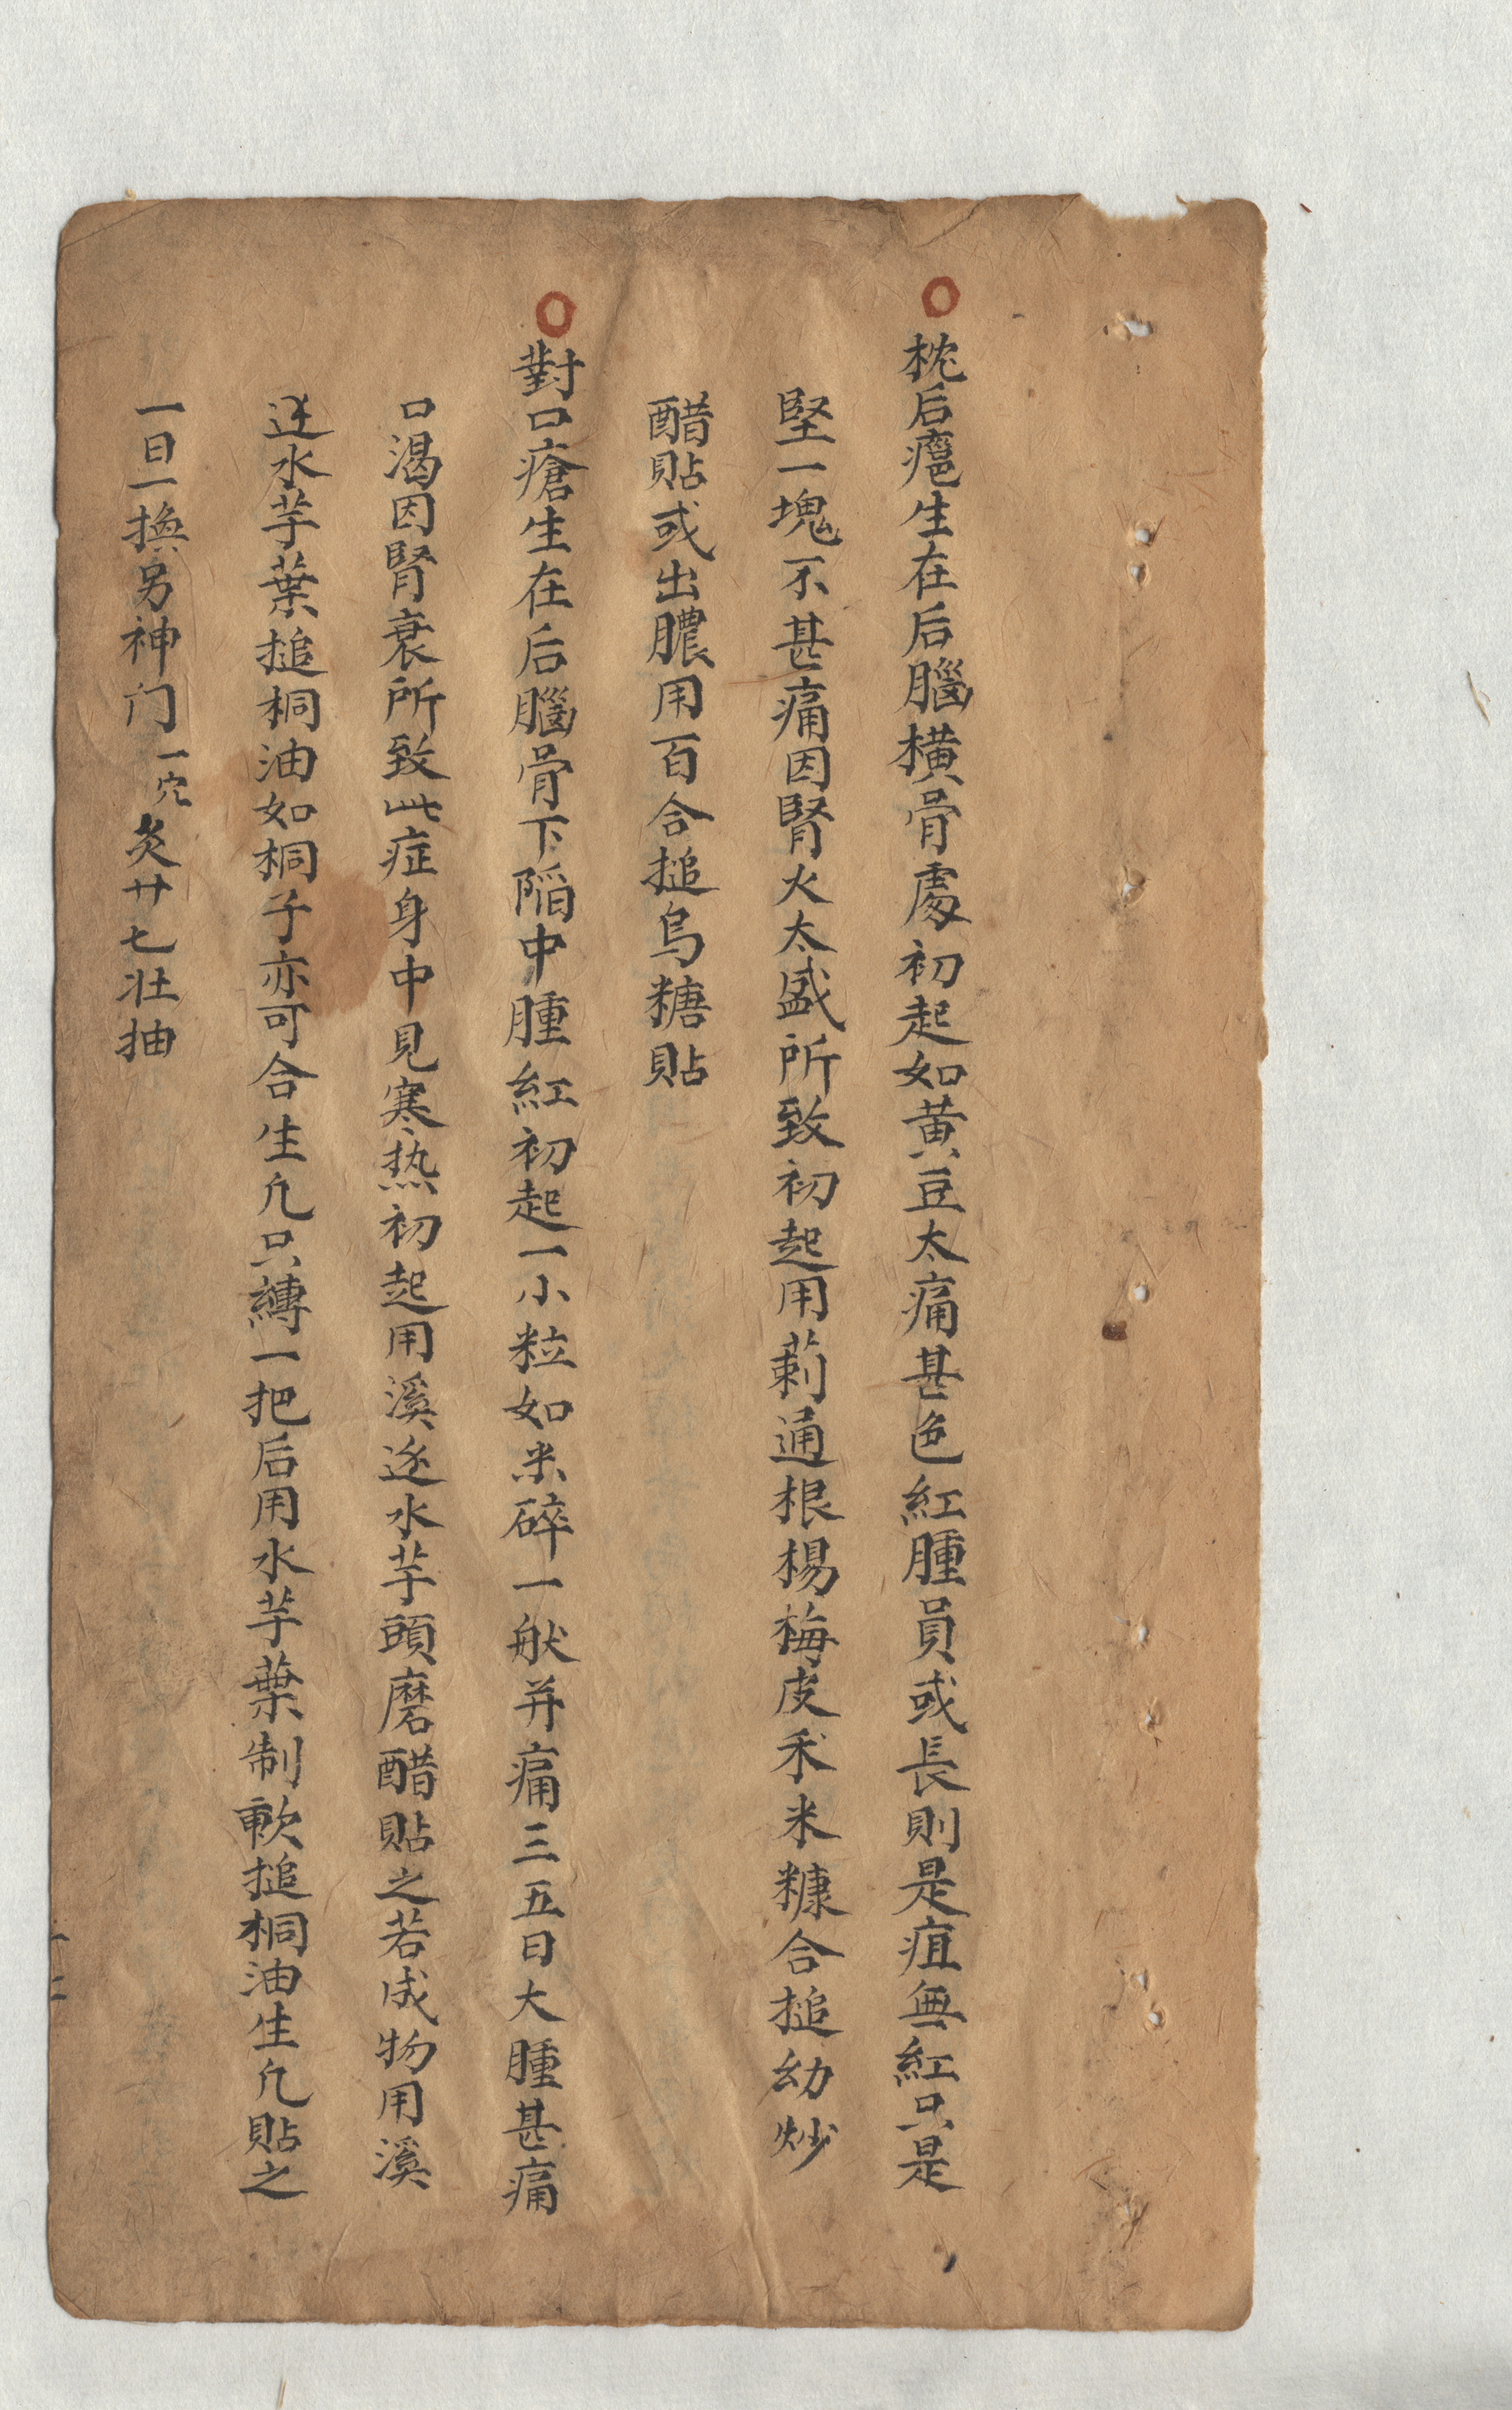 枕后癰生在后腦橫骨處初起如黃豆太痛甚色紅腫員或長則是疽無紅只是
堅一塊不甚痛因腎火太盛所致初起用莿通根楊梅皮禾米糠合搥幼炒
醋貼或出膿用百合搥烏糖貼
對口瘡生在后腦骨下陷中腫紅初起一小粒如米碎一般并痛三五日大腫甚痛
口渴因腎衰所致此症身中見寒热初起用溪邊水芋頭磨醋貼之若成物用溪
邊水芋葉搥桐油如桐子亦可合生几只縛一把后用水芋葉制軟搥桐油生几貼之
一日一換另神门一穴灸廿七壯抽